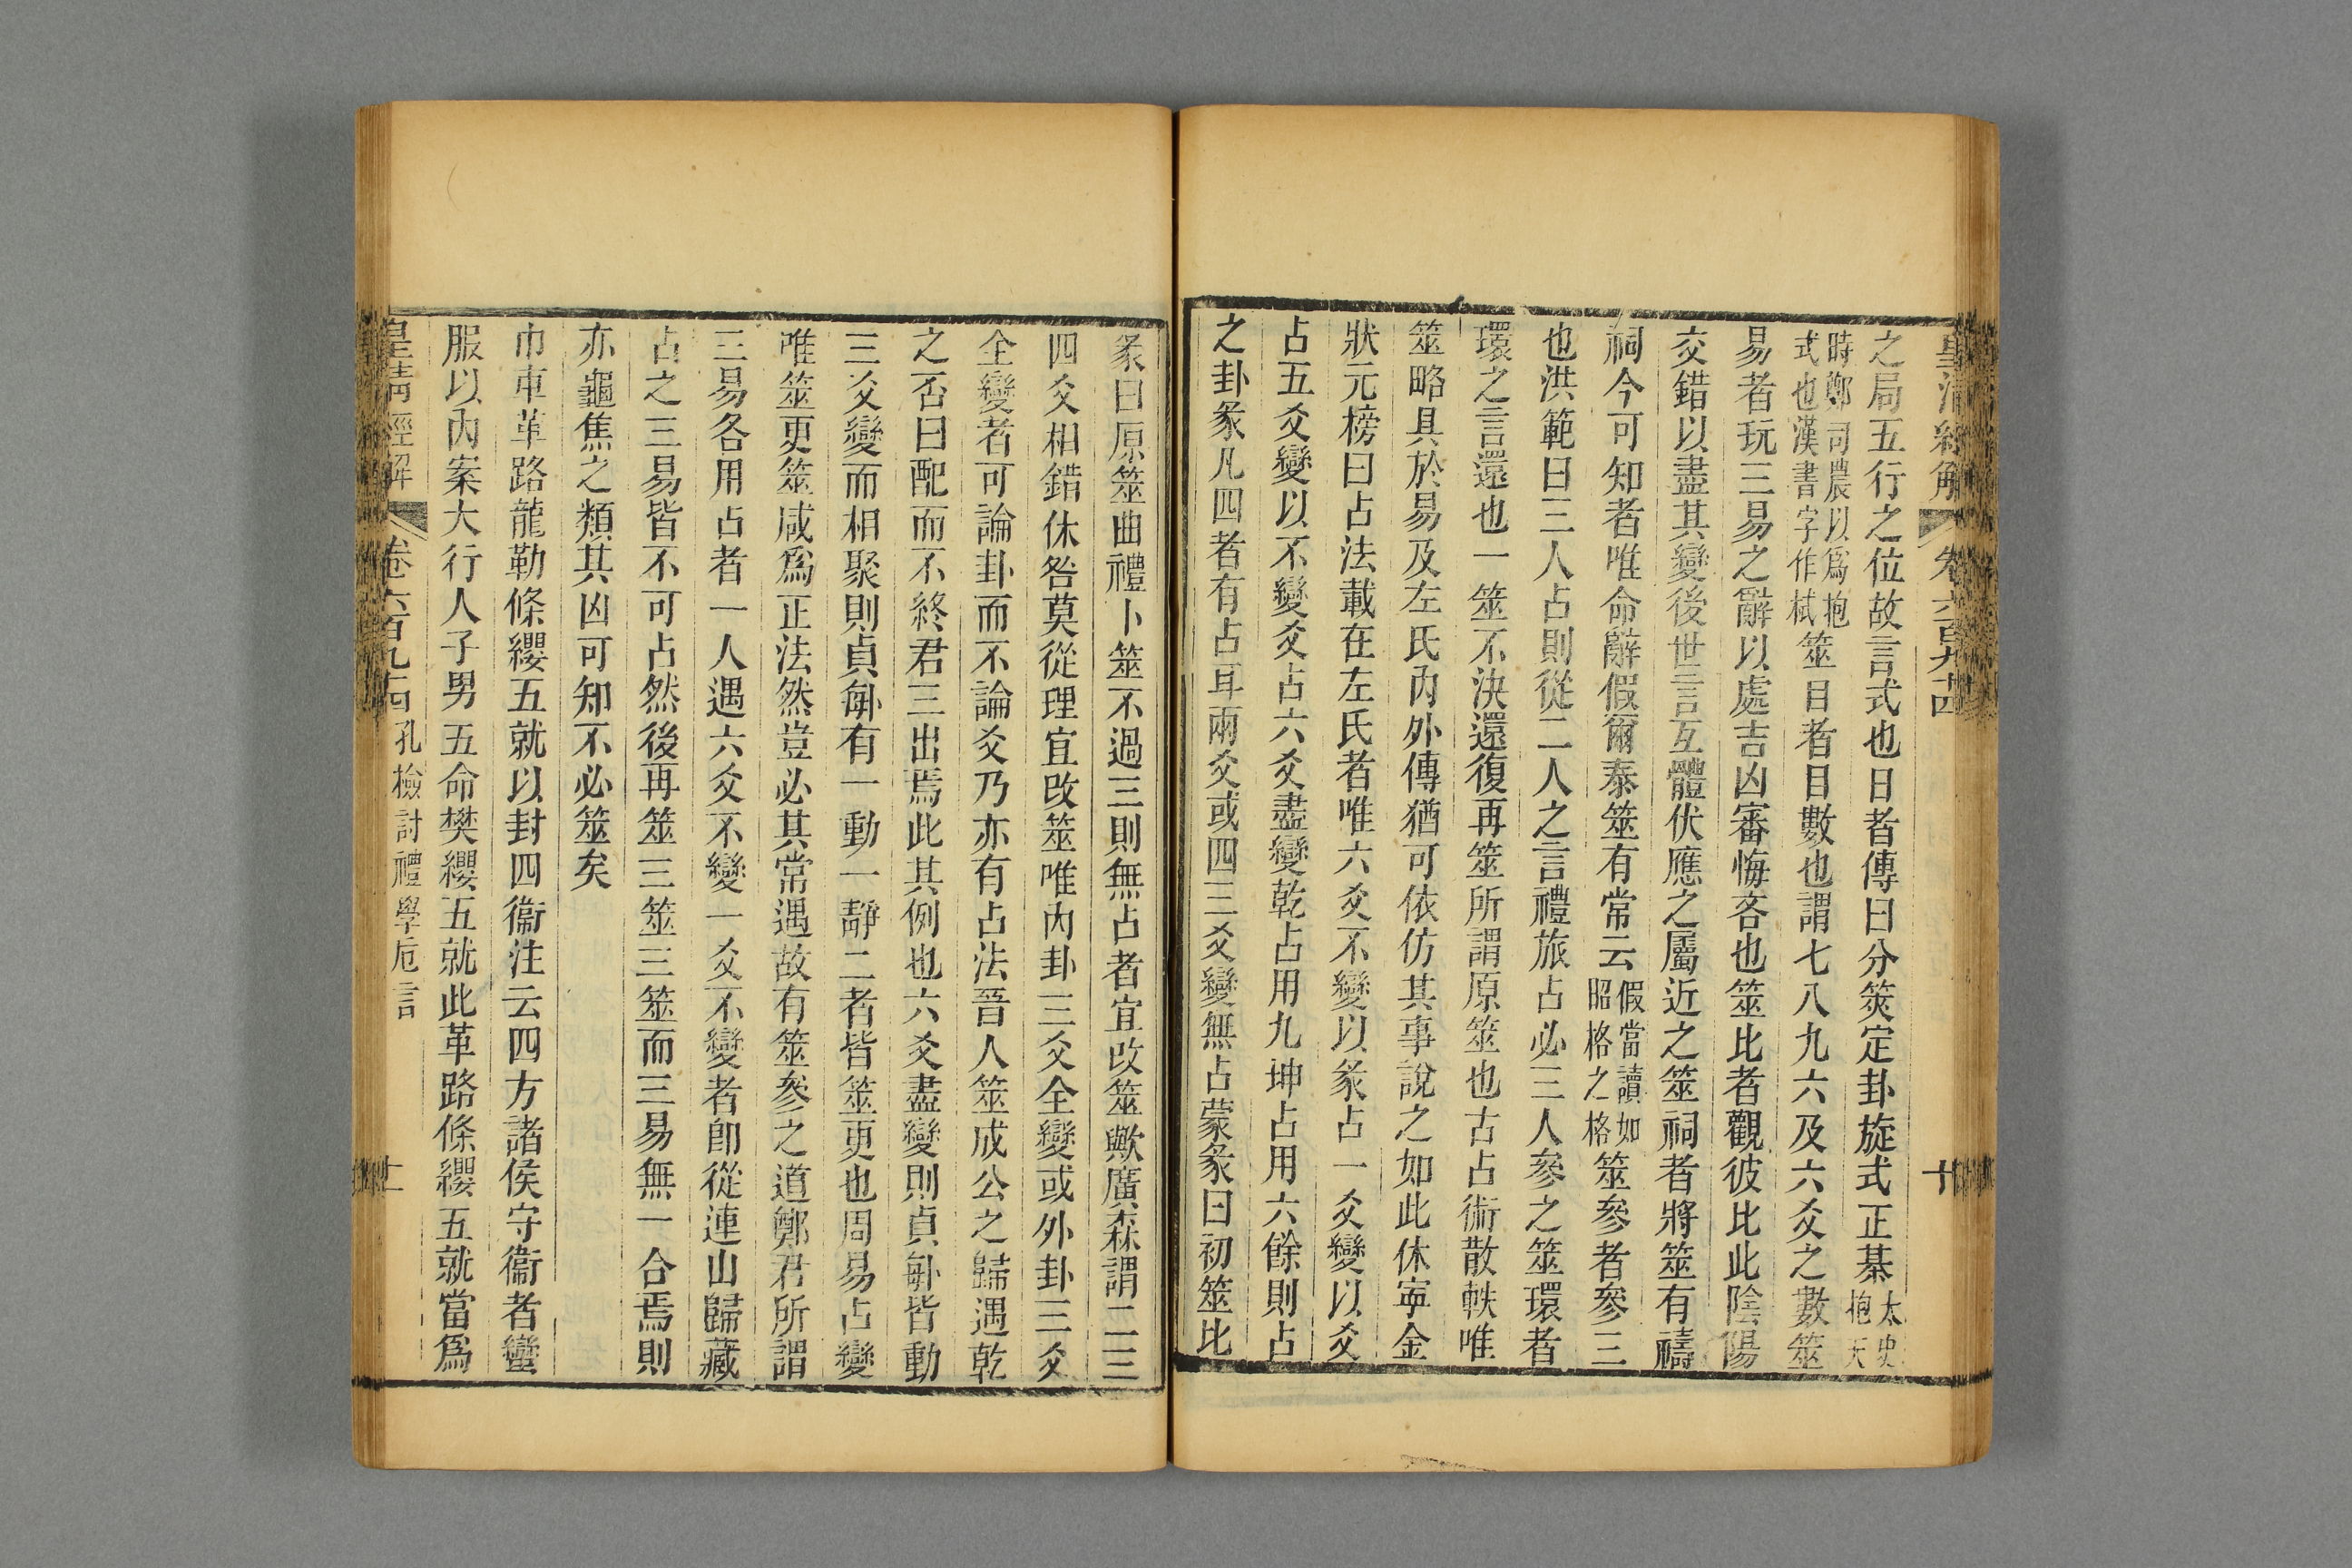 皇清經解 卷六百九十四 十
之局五行之位故言式也日者傳曰分筴定卦旋式正棊太史抱天
時鄭司農以爲抱式也漢書字作栻筮目者目數也謂七八九六及六爻之數筮
易者玩三易之辭以處吉凶審悔吝也筮比者觀彼比此陰陽
交錯以盡其變後世言互體伏應之屬近之筮祠者將筮有禱
祠今可知者唯命辭假爾泰筮有常云假當讀如昭格之格筮參者參三
也洪範曰三人占則從二人之言禮旅占必三人參之筮環者
環之言還也一筮不決還復再筮所謂原筮也古占術散軼唯
筮略具於易及左氏內外傳猶可依仿其事說之如此休寧金
狀元榜曰占法載在左氏者唯六爻不變以彖占一爻變以爻
占五爻變以不變爻占六爻盡變乾占用九坤占用六餘則占
之卦彖凡四者有占耳兩爻或四三爻變無占蒙彖曰初筮比
彖曰原筮曲禮卜筮不過三則無占者宜改筮歟廣森謂二三
四爻相錯休咎莫從理宜改筮唯內卦三爻全變或外卦三爻
全變者可論卦而不論爻乃亦有占法晉人筮成公之歸遇乾
之否曰配而不終君三出焉此其例也六爻盡變則貞𠧩皆動
三爻變而相聚則貞𠧩有一動一靜二者皆筮更也周易占變
唯筮更筮咸爲正法然豈必其常遇故有筮參之道鄭君所謂
三易各用占者一人遇六爻不變一爻不變者卽從連山歸藏
占之三易皆不可占然後再筮三筮三筮而三易無一合焉則
亦龜焦之類其凶可知不必筮矣
巾車革路龍勒條纓五就以封四衞注云四方諸侯守衞者蠻
服以內案大行人子男五命樊纓五就此革路條纓五就當爲
皇清經解 卷六百九十四 孔檢討禮學卮言 十一